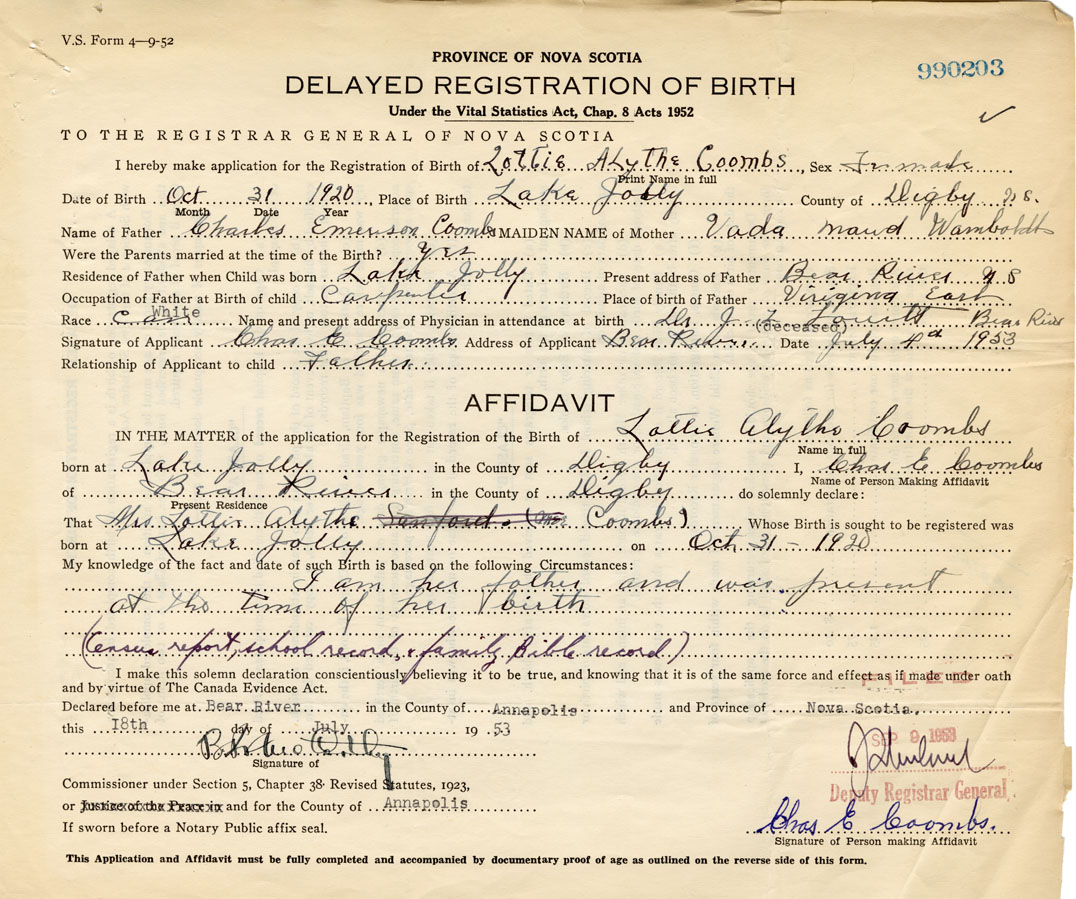 V.S. Form 4—9-52
PROVINCE OF NOVA SCOTIA
990203
DELAYED REGISTRATION OF BIRTH
Under the Vital Statistics Act, Chap. 8 Acts 1952
TO THE REGISTRAR GENERAL OF NOVA SCOTIA
I hereby make application for the Registration of Birth of Lottie ALythe Coombs, Sex Female
Print Name in full
Date of Birth Oct 31 1920, Place of Birth Lake Jolly County of Digby N.S.
Month Date Year
Name of Father Charles Emerson Coombs MAIDEN NAME of Mother Vada maud Wamboldt
Were the Parents married at the time of the Birth? Yes
Residence of Father when Child was born Lake Jolly Present address of Father Bear River N S
Occupation of Father at Birth of child Carpenter Place of birth of Father Virigina East
Race White Name and present address of Physician in attendance at birth Dr. J. Bear River
(deceased)
Signature of Applicant Chas E Coombs Address of Applicant Bear River Date July 4 1953
Relationship of Applicant to child Father
AFFIDAVIT
IN THE MATTER of the application for the Registration of the Birth of Lottie Alythe Coombs
Name in full
born at Lake Jolly in the County of Digby I, Chas E Coombs
Name of Person Making Affidavit
of Bear River in the County of Digby do solemnly declare:
Present Residence
That Mrs. Lottie Alythe Sanford (nee Coombs) Whose Birth is sought to be registered was
born at Lake Jolly on Oct 31 - 1920
My knowledge of the fact and date of such Birth is based on the following Circumstances:
I am her father and was present
at the time of her birth
(Census report, school record, & family Bible record)
I make this solemn declaration conscientiously believing it to be true, and knowing that it is of the same force and effect as if made under oath
and by virtue of The Canada Evidence Act.
FILED
Declared before me at Bear River in the County of Annapolis and Province of Nova Scotia.
this 18th day of July 19 53
SEP 9 1953
Signature of
Deputy Registrar General
Commissioner under Section 5, Chapter 38 Revised Statutes, 1923,
or Justice of the Peace in and for the County of Annapolis
Chas E Coombs.
If sworn before a Notary Public affix seal.
Signature of Person making Affidavit
This Application and Affidavit must be fully completed and accompanied by documentary proof of age as outlined on the reverse side of this form.